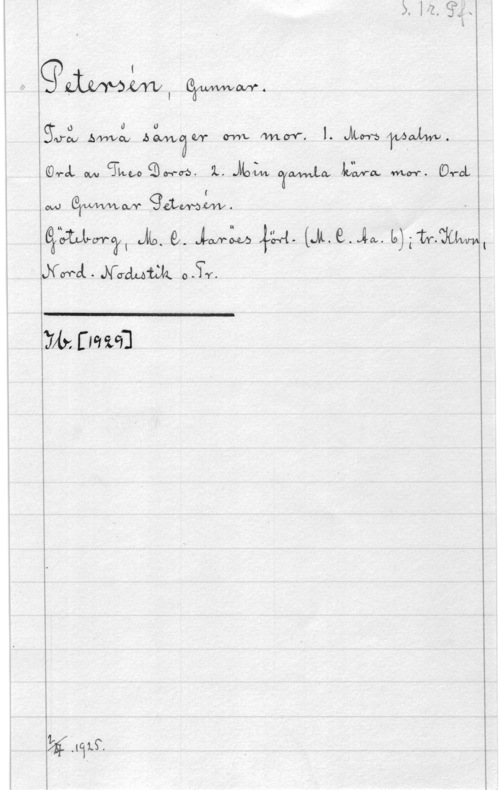 S. 1 r. Pf.
Petersén, Gunnar.
Två små sånger om mor. 1. Mors psalm.
Ord av Theo Doros. 2. Min gamla kära mor. Ord
av Gunnar Petersén.
Göteborg, M. C. Aaröes förl. (M. C. Aa. 6); tr. Khvn,
Nord. Nodestik o. Tr.
Ib. [1929]
1925.